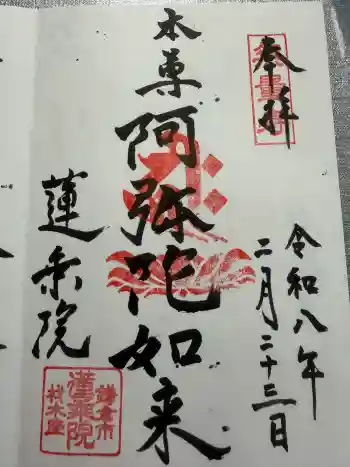 奉拝
令和八年
二月二十三日
本尊
阿弥陀如来
蓮乗院
鎌倉市
蓮乗院
材木座